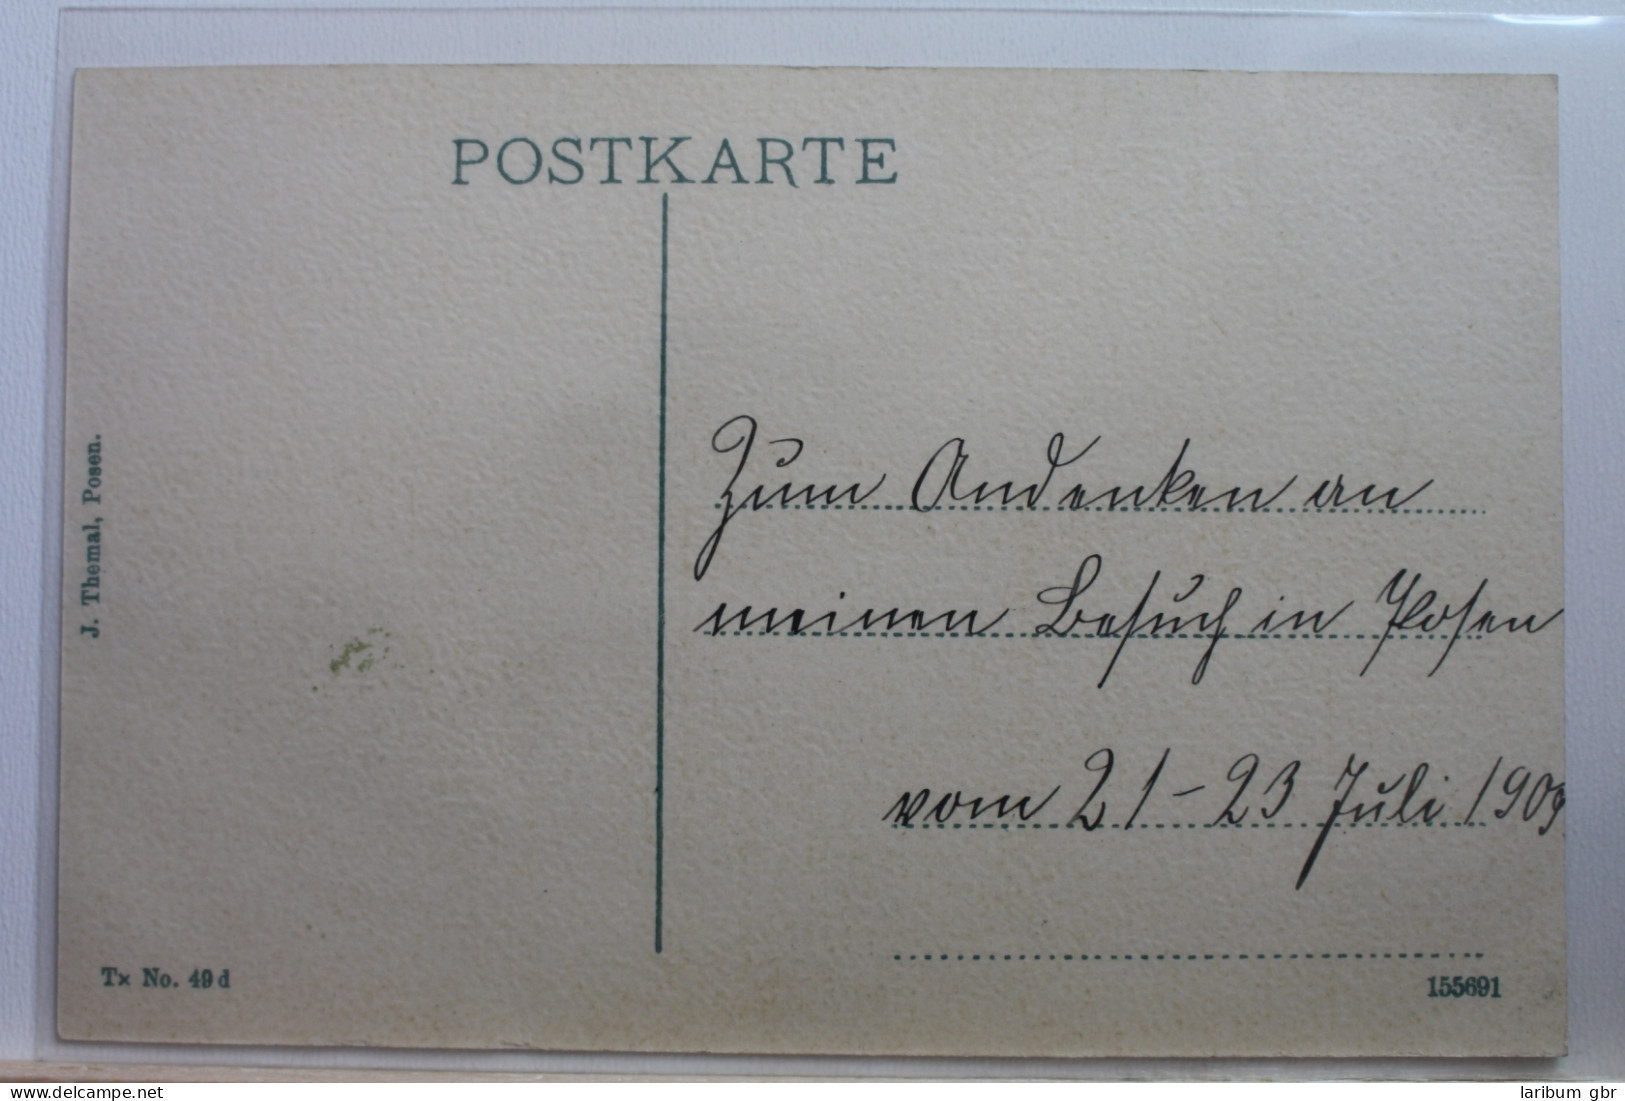 POSTKARTE
J. Themal, Posen.
Zum Andenken an
meinen Besuch in Posen
vom 21-23 Juli 1909
Tx No. 49 d
155691
www.delcampe.net
laribum gbr